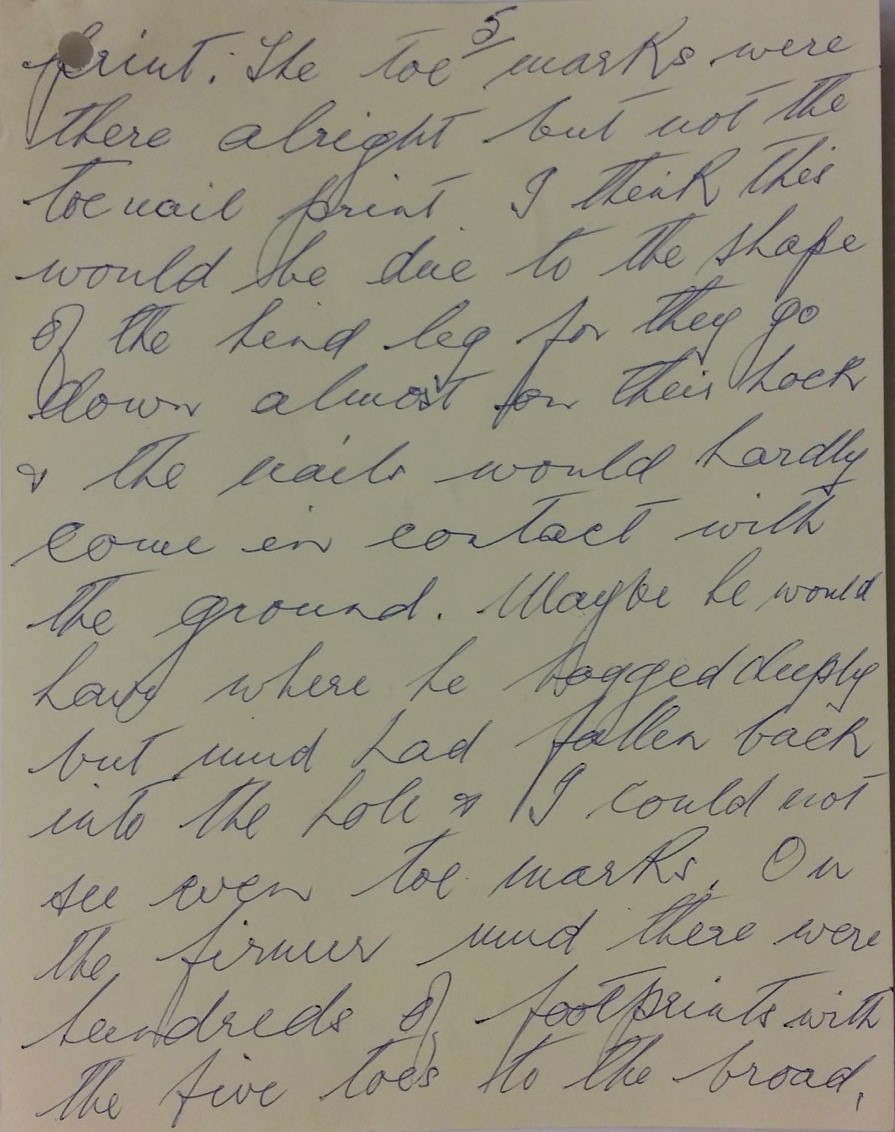 5
print. The toe marks were
there alright but not the
toe nail print I think this
would be due to the shape
of the hind leg for they go
down almost on their hock
& the nails would hardly
come in contact with
the ground. Maybe he would
have where he bogged deeply
but mud had fallen back
into the hole & I could not
see even toe marks. On
the firmer mud there were
hundreds of footprints with
the five toes to the broad,